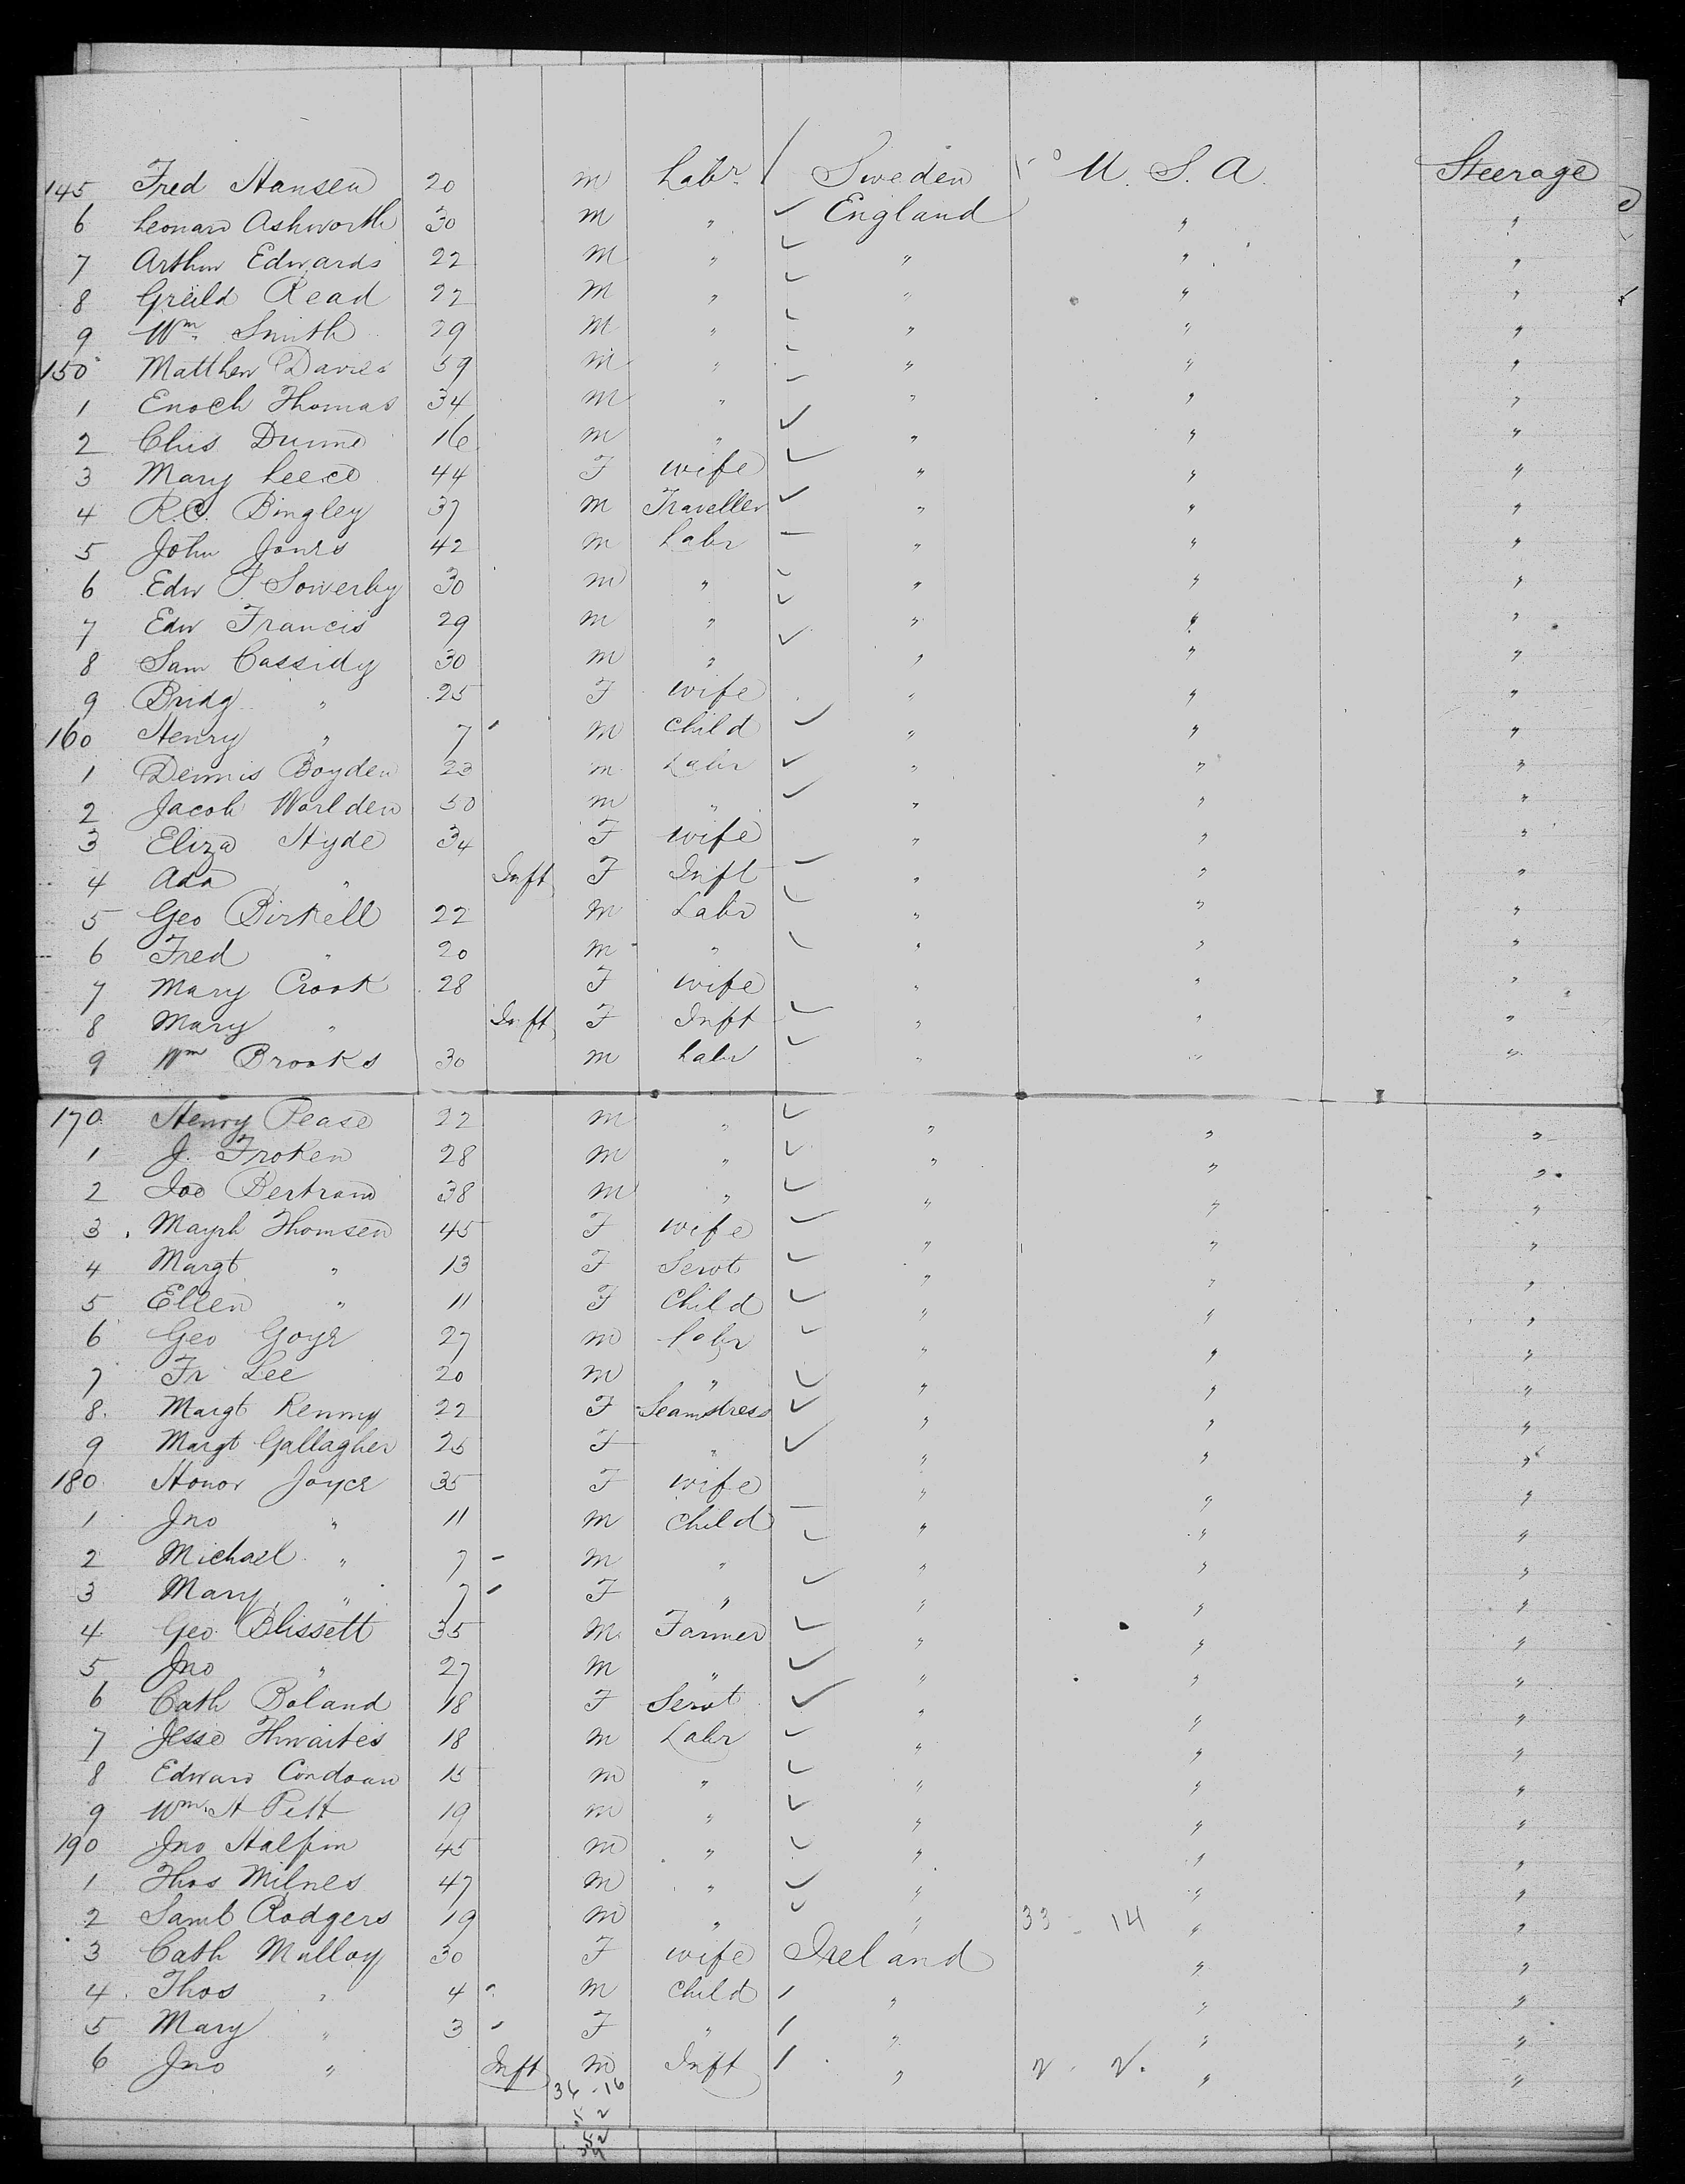 145 Fred Hansen 20 m Labr / Sweden U. S. A. Steerage
6 Leonard Ashworth 30 m " ✓ England " "
7 Arthur Edwards 22 m " ✓ " " "
8 Read 22 m " ✓ " " "
9 Wm Smith 29 m " ✓ " " "
150 Matthew Davies 59 m " ✓ " " "
1 Enoch Thomas 34 m " – " " "
2 Chis Dunne 16 m " ✓ " " "
3 Mary Leece 44 F wife ✓ " " "
4 R.C. Bingley 37 m Traveller ✓ " " "
5 John Jones 42 m Labr – " " "
6 Edw P Sowerby 30 m " ✓ " " "
7 Edw Francis 29 m " ✓ " " "
8 Sam Cassidy 30 m " ✓ " " "
9 Bridg " 25 F wife " " "
160 Henry " 7 m Child ✓ " " "
1 Dennis Boyden 23 m Labr ✓ " " "
2 Jacob Worlden 50 m " ✓ " " "
3 Eliza Hyde 34 F wife " " "
4 Ada " Inft F Inft ✓ " " "
5 Geo Birkell 22 m Labr ✓ " " "
6 Fred " 20 m " ✓ " " "
7 Mary Crook 28 F wife " " "
8 Mary " Inft F Inft ✓ " " "
9 Wm Brooks 30 m Labr ✓ " " "
170 Henry Pease 22 m " ✓ " " "
1 J. Troken 28 m " ✓ " " "
2 Bertram 38 m " ✓ " " "
3 Thomsen 45 F wife ✓ " " "
4 Margt " 13 F Servt ✓ " " "
5 Ellen " 11 F Child ✓ " " "
6 Geo Goye 27 m Labr ✓ " " "
7 Fr Lee 20 m " ✓ " " "
8 Margt Kenny 22 F Seamstress ✓ " " "
9 Margt Gallagher 25 F " ✓ " " "
180 Honor Joyce 35 F wife " " "
1 Jno " 11 m Child – " " "
2 Michael " 7 - m " ✓ " " "
3 Mary " 7 - F " ✓ " " "
4 Geo Blissett 35 m Farmer ✓ " " "
5 Jno " 27 m " ✓ " " "
6 Cath Boland 18 F Servt ✓ " " "
7 Jesse Thwaites 18 m Labr ✓ " " "
8 Edward Condoan 15 m " ✓ " " "
9 Wm H Pett 19 m " ✓ " " "
190 Jno Halpin 45 m " ✓ " " "
1 Thos Milnes 47 m " ✓ " " "
2 Saml Rodgers 19 m " ✓ " 33 - 14 " "
3 Cath Mulloy 30 F wife Ireland " "
4 Thos " 4 m Child / " " "
5 Mary " 3 F " / " " "
6 Jno " Inft m Inft / " 2 . 2. " "
36 - 16
52